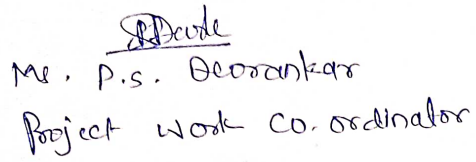 Ms. P.S. Deorankar
Project Work Co. ordinator